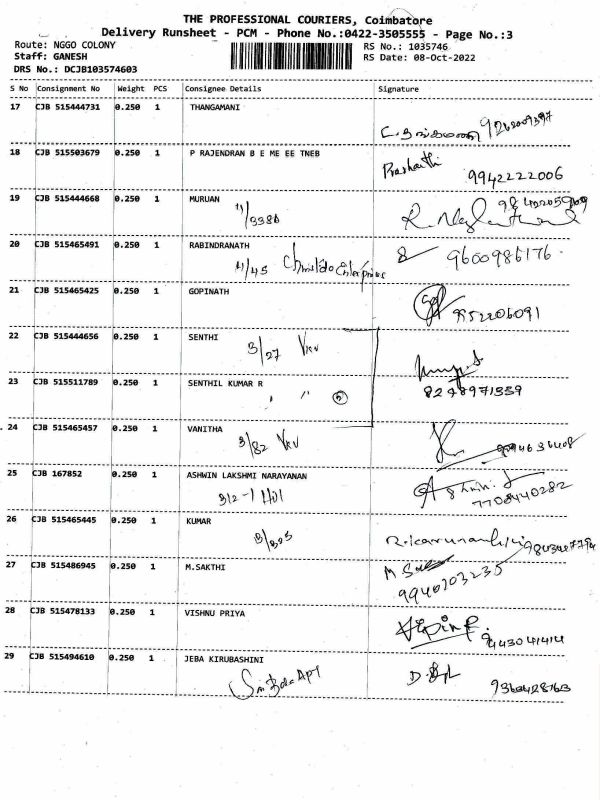 THE PROFESSIONAL COURIERS, Coimbatore
Delivery Runsheet - PCM - Phone No.:0422-3505555 - Page No.:3
Route: NGGO COLONY
RS No.: 1035746
Staff: GANESH
RS Date: 08-Oct-2022
DRS No.: DCJB103574603
S No Consignment No Weight PCS Consignee Details Signature
17 CJB 515444731 0.250 1 THANGAMANI
18 CJB 515503679 0.250 1 P RAJENDRAN B E ME EE TNEB
Prashanth 9942222006
19 CJB 515444668 0.250 1 MURUAN
11/338B
20 CJB 515465491 0.250 1 RABINDRANATH 9600986176
4/45
21 CJB 515465425 0.250 1 GOPINATH
9952206091
22 CJB 515444656 0.250 1 SENTHI
3/27 VKV
23 CJB 515511789 0.250 1 SENTHIL KUMAR R
" 2
8248971339
24 CJB 515465457 0.250 1 VANITHA
3/82 VKV
25 CJB 167852 0.250 1 ASHWIN LAKSHMI NARAYANAN
7708440282
26 CJB 515465445 0.250 1 KUMAR
3/305
27 CJB 515486945 0.250 1 M.SAKTHI
9940703235
28 CJB 515478133 0.250 1 VISHNU PRIYA
29 CJB 515494610 0.250 1 JEBA KIRUBASHINI
Sri Bala Apt 9360428763